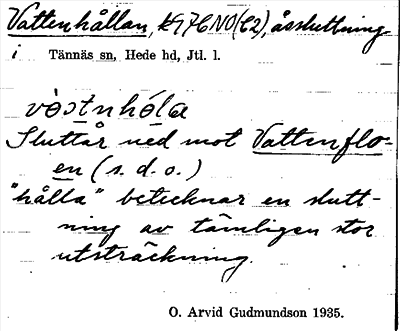 Vattenhållan, k97CNO(C2), åssluttning
i Tännäs sn, Hede hd, Jtl. l.
Sluttar ned mot Vattenflo-
en (s. d. o.)
"hålla" betecknar en slutt-
ning av tämligen stor
utsträckning.
O. Arvid Gudmundson 1935.